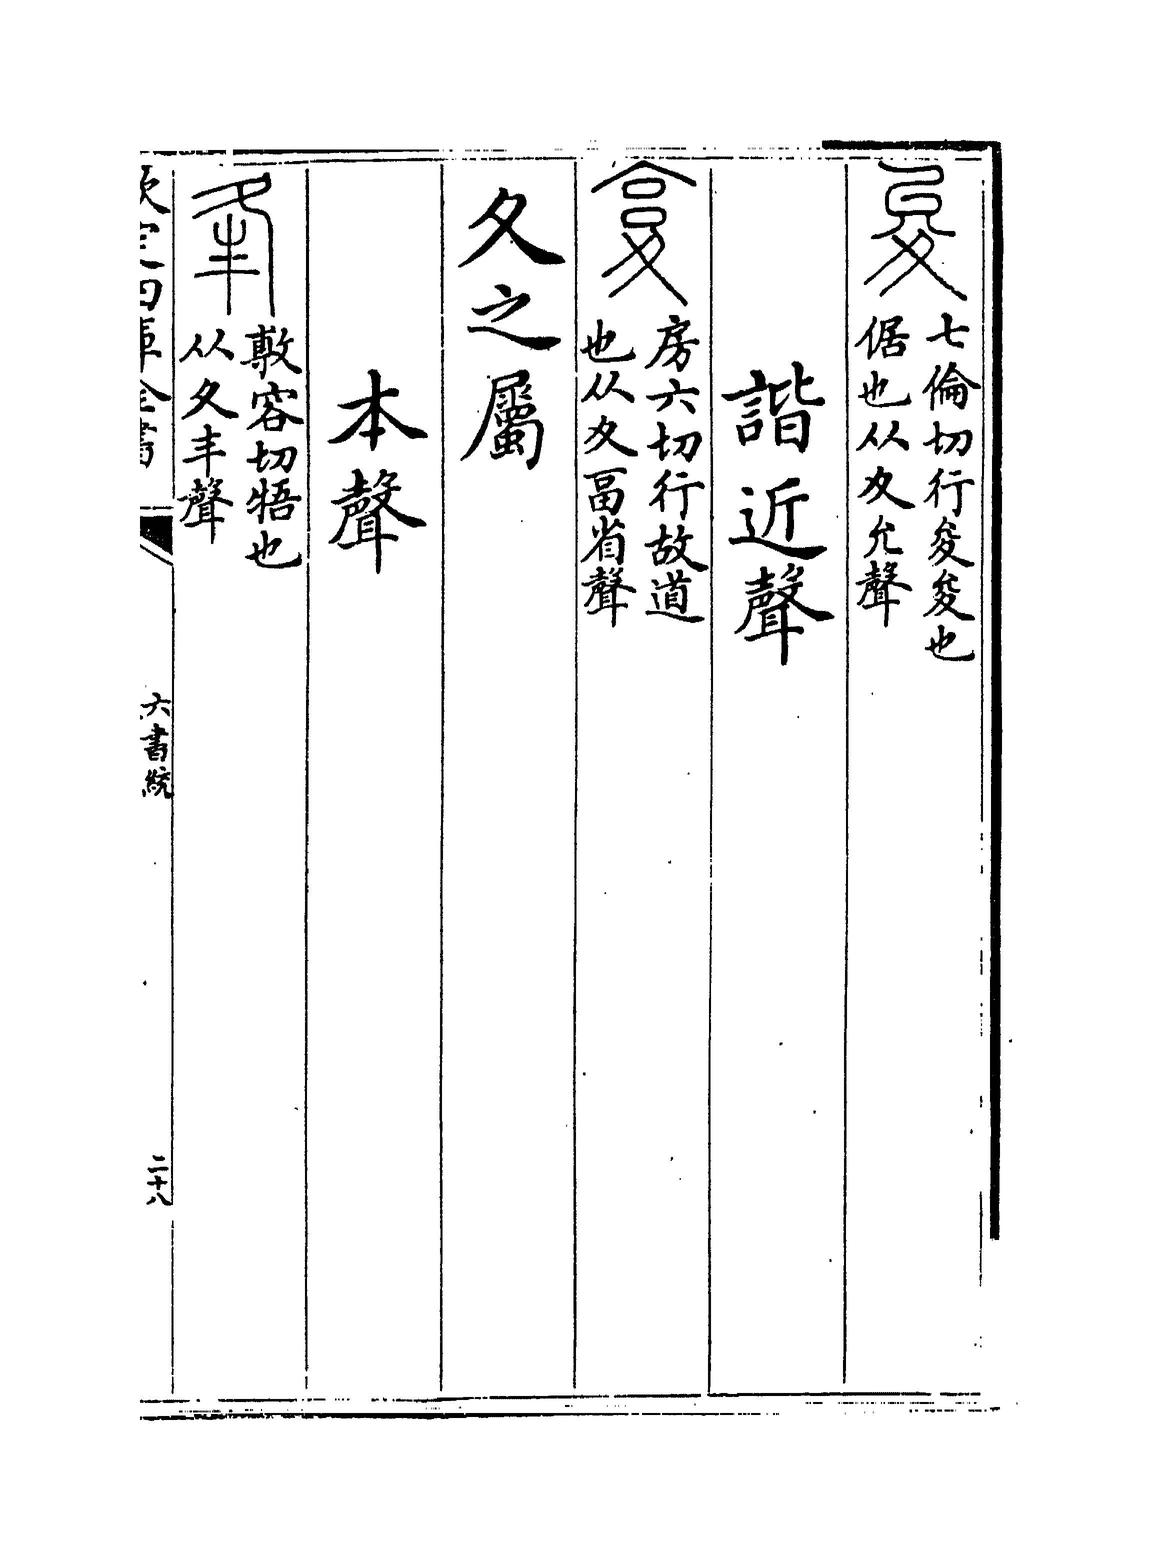 夋
七倫切行夋夋也
倨也从夊允聲
諧近聲
𡕨
房六切行故道
也从夊畐省聲
夂之屬
本聲
夆
敷容切啎也
从夂丰聲
欽定四庫全書
六書統
二十八